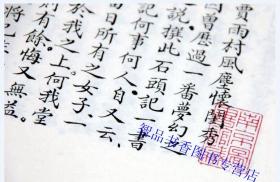 賈雨村風塵懷閨秀
因曾歷過一番夢幻之
說撰此石頭記一書
記何事何人自又云、
日所有之女子一
於我之上何我堂
有餘悔又無益。
將已
智品书香图书专营店